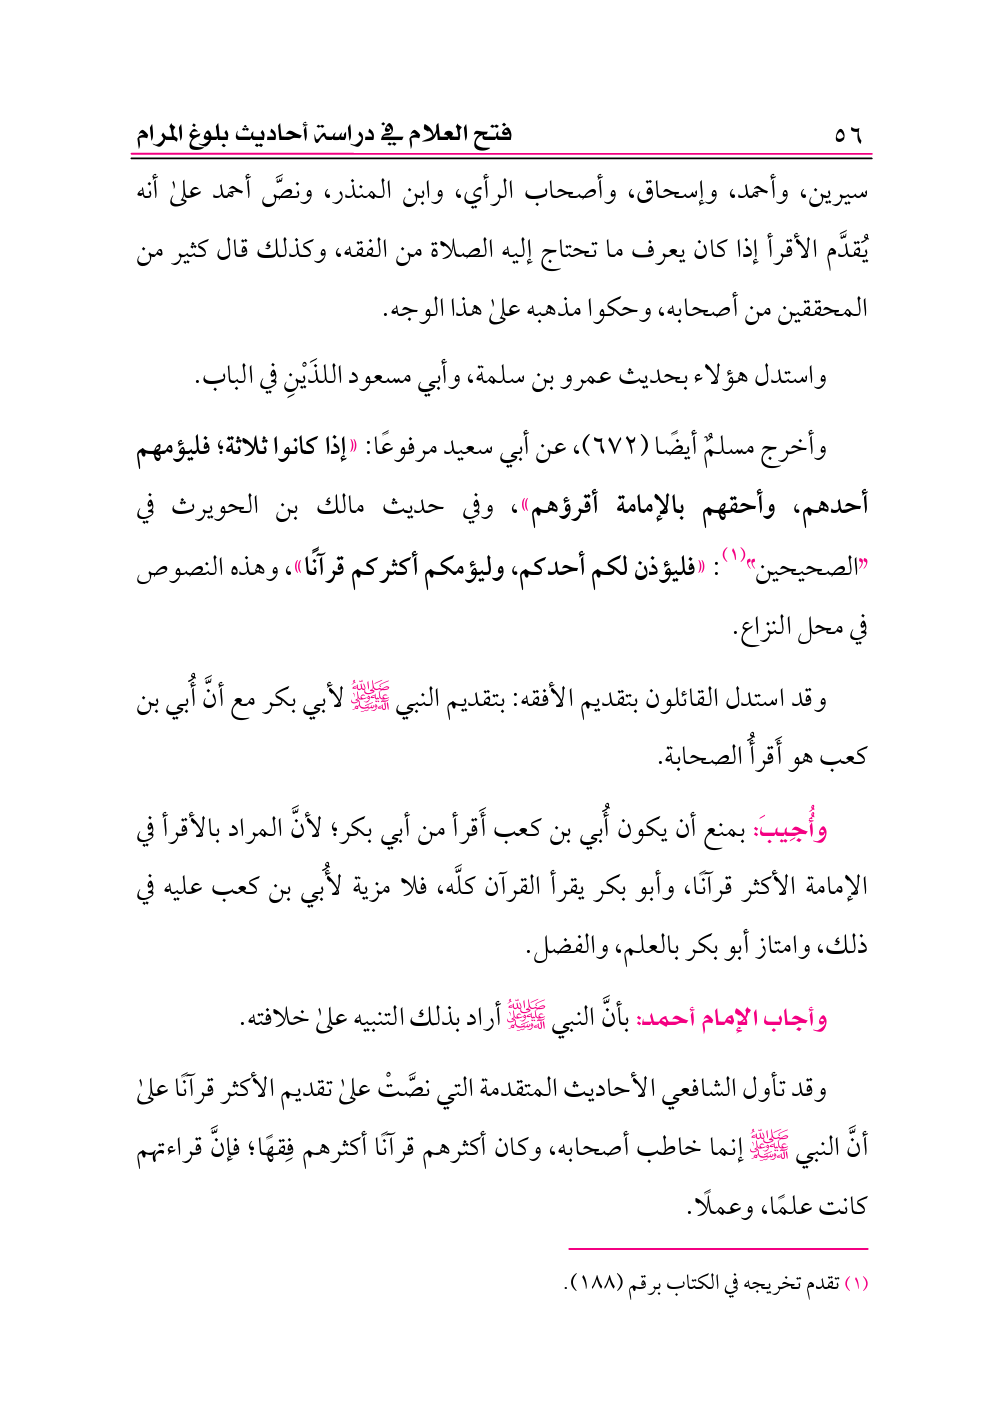 ٥٦ فتح العلام في دراسة أحاديث بلوغ المرام
سيرين، وأحمد، وإسحاق، وأصحاب الرأي، وابن المنذر، ونصَّ أحمد علىٰ أنه
يُقدَّم الأقرأ إذا كان يعرف ما تحتاج إليه الصلاة من الفقه، وكذلك قال كثير من
المحققين من أصحابه، وحكوا مذهبه علىٰ هذا الوجه.
واستدل هؤلاء بحديث عمرو بن سلمة، وأبي مسعود اللذَيْنِ في الباب.
وأخرج مسلمٌ أيضًا (٦٧٢)، عن أبي سعيد مرفوعًا: «إذا كانوا ثلاثة؛ فليؤمهم
أحدهم، وأحقهم بالإمامة أقرؤهم»، وفي حديث مالك بن الحويرث في
”الصحيحين“(١): «فليؤذن لكم أحدكم، وليؤمكم أكثركم قرآنًا»، وهذه النصوص
في محل النزاع.
وقد استدل القائلون بتقديم الأفقه: بتقديم النبي ﷺ لأبي بكر مع أنَّ أُبي بن
كعب هو أَقرأُ الصحابة.
وأُجِيبَ: بمنع أن يكون أُبي بن كعب أَقرأ من أبي بكر؛ لأنَّ المراد بالأقرأ في
الإمامة الأكثر قرآنًا، وأبو بكر يقرأ القرآن كلَّه، فلا مزية لأُبي بن كعب عليه في
ذلك، وامتاز أبو بكر بالعلم، والفضل.
وأجاب الإمام أحمد: بأنَّ النبي ﷺ أراد بذلك التنبيه علىٰ خلافته.
وقد تأول الشافعي الأحاديث المتقدمة التي نصَّتْ علىٰ تقديم الأكثر قرآنًا علىٰ
أنَّ النبي ﷺ إنما خاطب أصحابه، وكان أكثرهم قرآنًا أكثرهم فِقهًا؛ فإنَّ قراءتهم
كانت علمًا، وعملًا.
(١) تقدم تخريجه في الكتاب برقم (١٨٨).